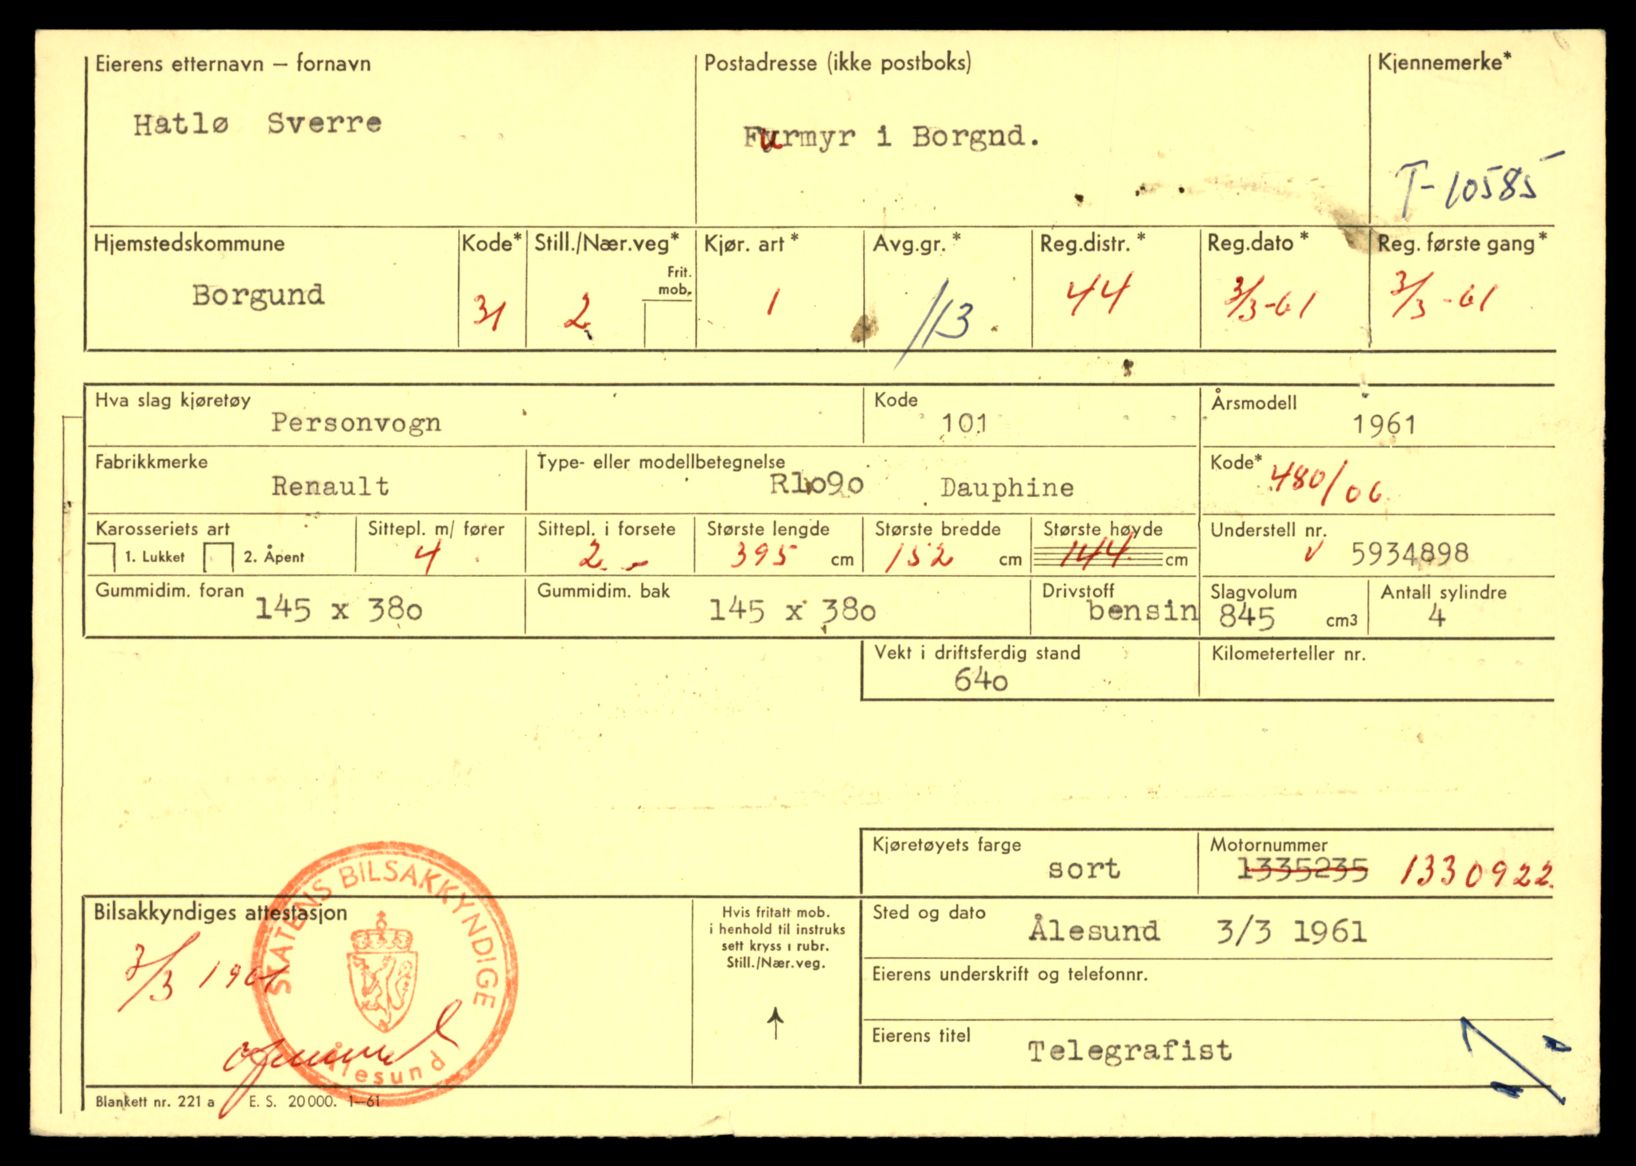 Eierens etternavn – fornavn
Hatlø Sverre
Postadresse (ikke postboks)
Furmyr i Borgnd.
Kjennemerke*
T-10585
Hjemstedskommune
Borgund
Kode*
31
Still./Nær.veg*
2
Frit.
mob.
Kjør. art*
1
Avg.gr.*
113
Reg.distr.*
44
Reg.dato*
3/3-61
Reg. første gang*
3/3-61
Hva slag kjøretøy
Personvogn
Kode
101
Årsmodell
1961
Fabrikkmerke
Renault
Type- eller modellbetegnelse
R1o9o Dauphine
Kode*
480/06
Karosseriets art
1. Lukket 2. Åpent
Sittepl. m/ fører
4
Sittepl. i forsete
2
Største lengde
395 cm
Største bredde
152 cm
Største høyde
144 cm
Understell nr.
5934898
Gummidim. foran
145 x 38o
Gummidim. bak
145 x 38o
Drivstoff
bensin
Slagvolum
845 cm3
Antall sylindre
4
Vekt i driftsferdig stand
64o
Kilometerteller nr.
Kjøretøyets farge
sort
Motornummer
1335235 1330922
Bilsakkyndiges attestasjon
3/3 1961
STATENS BILSAKKYNDIGE
Ålesund
Hvis fritatt mob.
i henhold til instruks
sett kryss i rubr.
Still./Nær.veg.
Sted og dato
Ålesund 3/3 1961
Eierens underskrift og telefonnr.
Eierens titel
Telegrafist
Blankett nr. 221 a E. S. 20000. 1–61